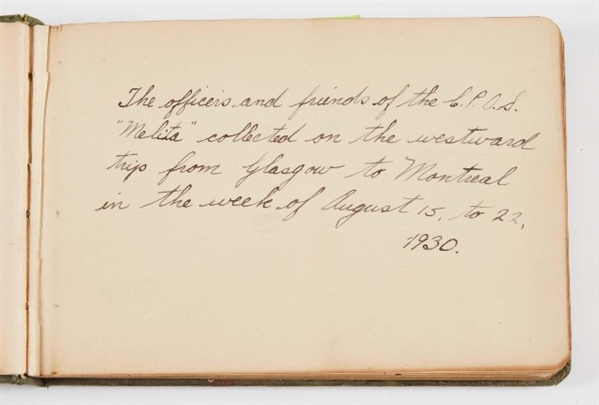 The officers and friends of the C.P.O.S.
"Melita" collected on the westward
trip from Glasgow to Montreal
in the week of August 15, to 22,
1930.